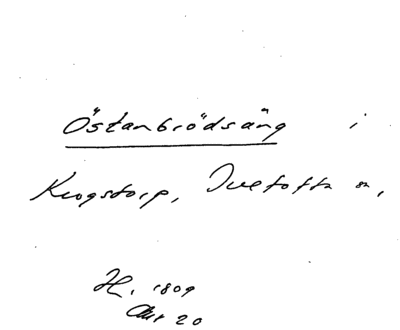 Östanbrödsäng i
Krogstorp, Ivetofta sn,
H. 1809
Akt 20